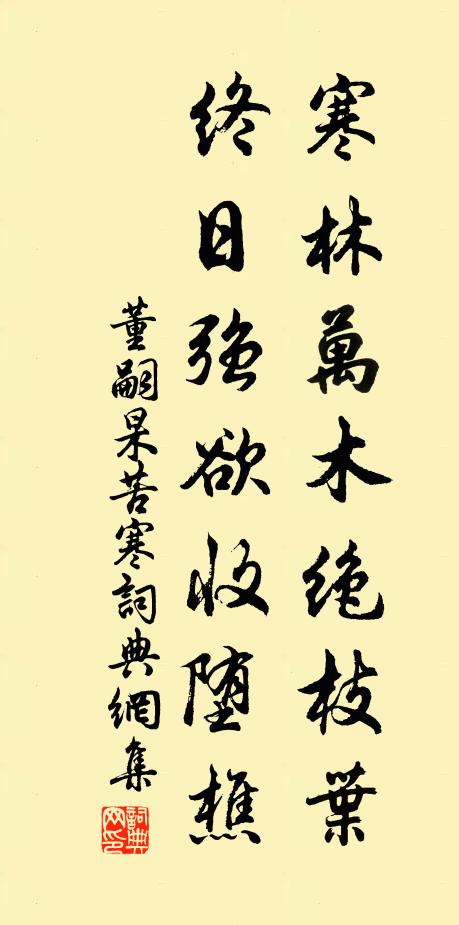 寒林萬木絶枝葉
終日強欲收墮樵
董嗣杲苦寒詞典網集
詞典網印